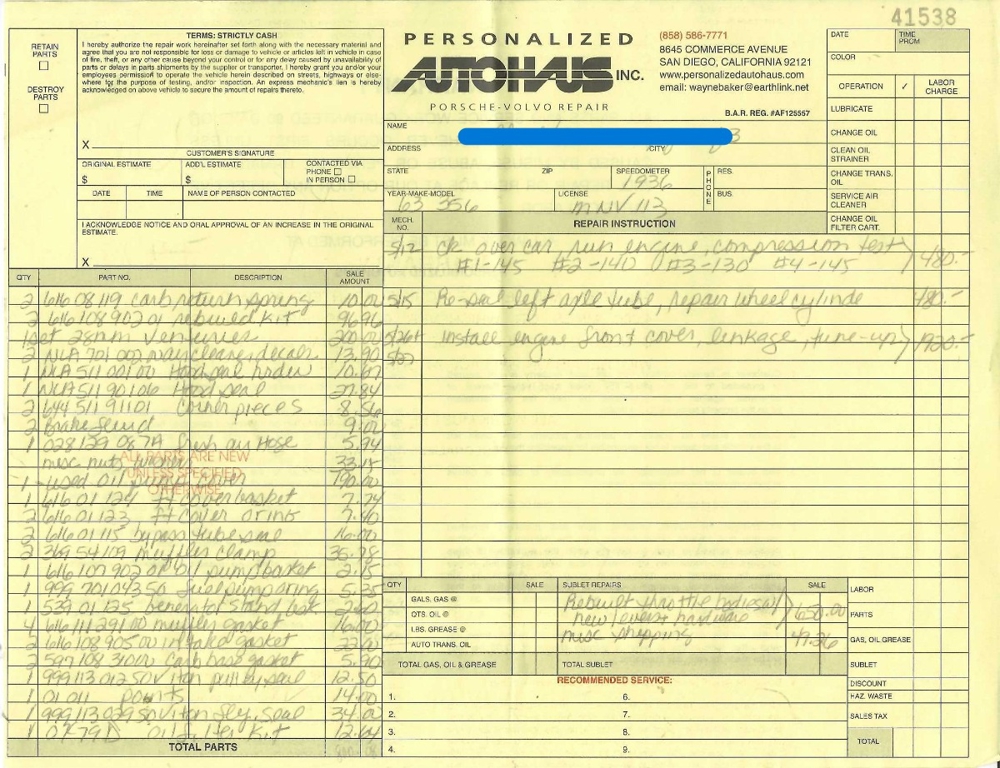 41538
RETAIN PARTS
DESTROY PARTS
TERMS: STRICTLY CASH
I hereby authorize the repair work hereinafter set forth along with the necessary material and
agree that you are not responsible for loss or damage to vehicle or articles left in vehicle in case
of fire, theft, or any other cause beyond your control or for any delay caused by unavailability of
parts or delays in parts shipments by the supplier or transporter. I hereby grant you and/or your
employees permission to operate the vehicle herein described on streets, highways or else-
where for the purpose of testing, and/or inspection. An express mechanic's lien is hereby
acknowledged on above vehicle to secure the amount of repairs thereto.
X
CUSTOMER'S SIGNATURE
ORIGINAL ESTIMATE
$
ADD'L ESTIMATE
$
CONTACTED VIA
PHONE
IN PERSON
DATE TIME NAME OF PERSON CONTACTED
I ACKNOWLEDGE NOTICE AND ORAL APPROVAL OF AN INCREASE IN THE ORIGINAL
ESTIMATE.
X
PERSONALIZED
AUTOHAUS INC.
PORSCHE-VOLVO REPAIR
(858) 586-7771
8645 COMMERCE AVENUE
SAN DIEGO, CALIFORNIA 92121
www.personalizedautohaus.com
email: waynebaker@earthlink.net
B.A.R. REG. #AF125557
NAME
ADDRESS CITY
STATE ZIP SPEEDOMETER 1936 PHONE RES.
YEAR-MAKE-MODEL 63 356 LICENSE MNV 113 BUS.
MECH. NO. REPAIR INSTRUCTION
5/12 ck over car, run engine, compression test 480.-
#1-145 #2-140 #3-130 #4-145
5/15 Re-seal left axle tube, repair wheel cylinde 480.-
install engine front cover, linkage, tune-up 1920.-
DATE TIME PROM
COLOR
OPERATION ✓ LABOR CHARGE
LUBRICATE
CHANGE OIL
CLEAN OIL STRAINER
CHANGE TRANS. OIL
SERVICE AIR CLEANER
CHANGE OIL FILTER CART.
QTY PART NO. DESCRIPTION SALE AMOUNT
2 616 08 119 carb return spring 10.00
2 616 108 902 01 rebuild kit 96.96
1 set 28mm venturies 200.00
2 NLA 701 decals 13.90
1 NLA 511 001 00 Hood seal 10.67
1 NLA 511 901 06 Hood seal 27.84
2 644 511 911 01 corner pieces 8.56
2 Brake fluid 9.00
1 028 139 087A fresh air Hose 5.94
misc nuts
ALL PARTS ARE NEW
UNLESS SPECIFIED
OTHERWISE
1 used oil pump cover 190.00
1 616 01 124 7.74
2 616 01 123 7.40
2 616 01 115 bypass tube seal 16.00
2 369 54 109 muffler clamp 35.78
1 616 107 902 oil pump 2.15
1 999 701 043 50 fuel pump oring 5.35
1 539 01 125 generator stand 2.60
4 616 111 291 00 muffler gasket 16.00
2 616 108 905 00 intake gasket
2 597 108 310 00 carb base gasket 5.90
1 999 113 012 50 Viton pulley seal 12.50
1 01 011 points 14.00
1 999 113 039 50 Viton fly. seal 34.00
1 OX79D oil filter kit 12.64
TOTAL PARTS
QTY SALE SUBLET REPAIRS SALE
GALS. GAS @
QTS. OIL @
LBS. GREASE @
AUTO TRANS. OIL
TOTAL GAS, OIL & GREASE TOTAL SUBLET
Rebuilt throttle
new levers + hardware 650.00
misc shipping 47.36
LABOR
PARTS
GAS, OIL GREASE
SUBLET
DISCOUNT
HAZ. WASTE
SALES TAX
TOTAL
RECOMMENDED SERVICE:
1. 6.
2. 7.
3. 8.
4. 9.